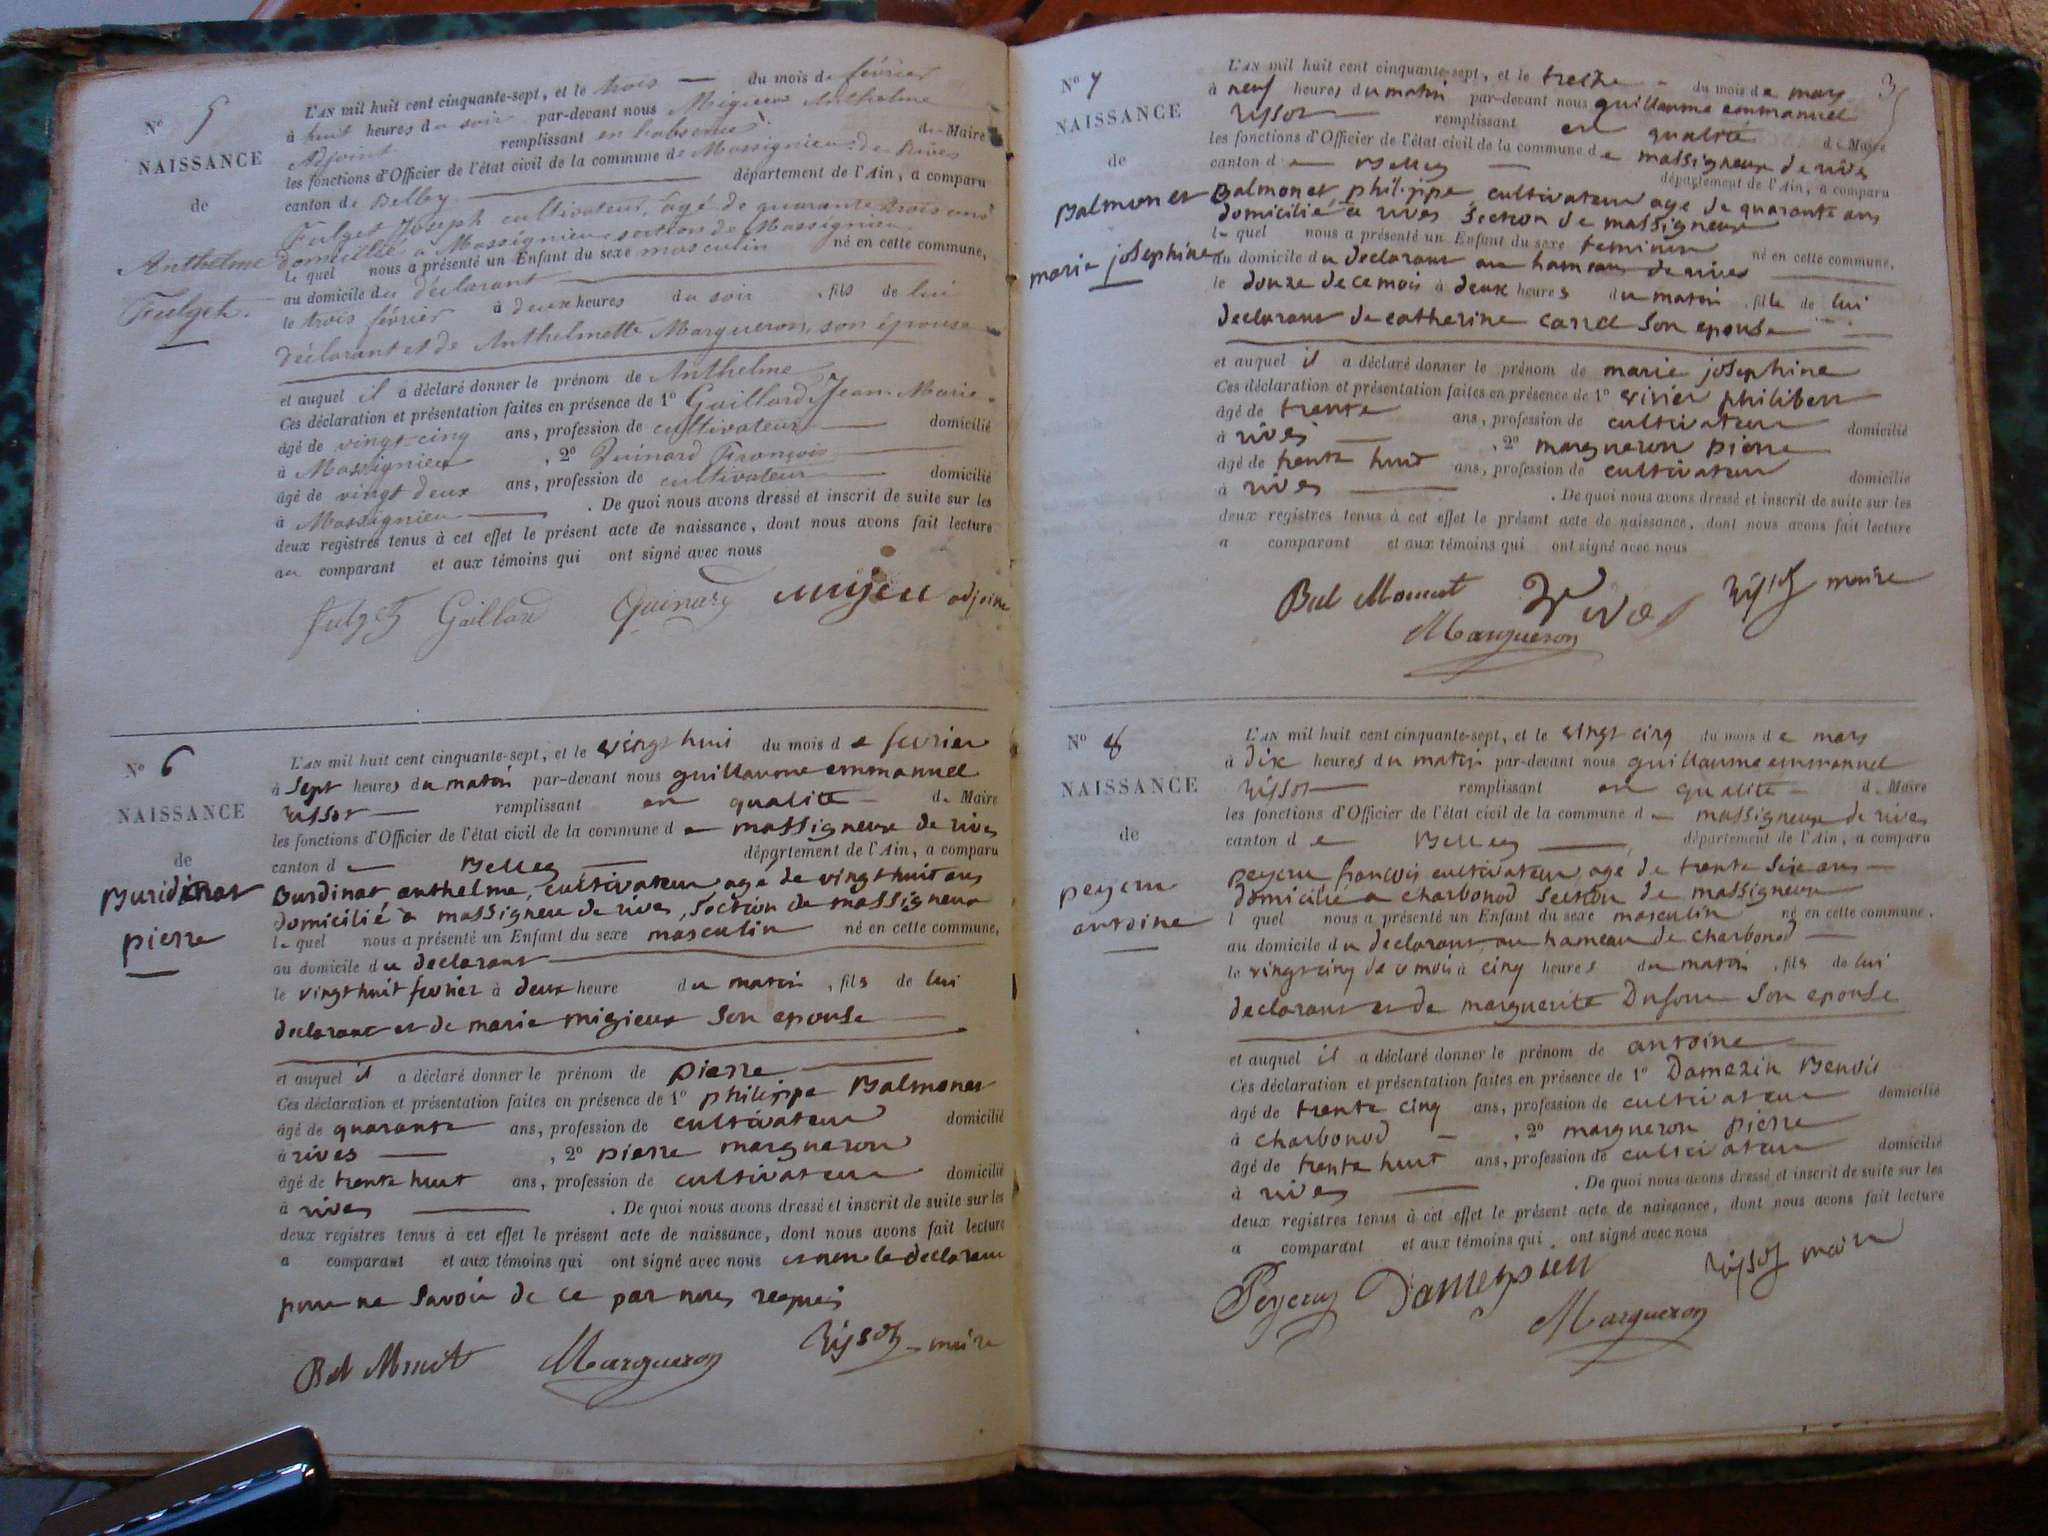 Nº 5
NAISSANCE
de
Anthelme
Fulget.
L'AN mil huit cent cinquante-sept, et le trois du mois de février
à huit heures du soir par-devant nous Migieux Anthelme
Adjoint remplissant en l'absence du Maire
les fonctions d'Officier de l'état civil de la commune de Massignieu de Rives
canton de Belley département de l'Ain, a comparu
Fulget Joseph cultivateur, agé de quarante trois ans
domicilié à Massignieu section de Massignieu
lequel nous a présenté un Enfant du sexe masculin né en cette commune,
au domicile du déclarant
le trois février à deux heures du soir, fils de lui
déclarant et de Anthelmette Margueron, son épouse
et auquel il a déclaré donner le prénom de Anthelme
Ces déclaration et présentation faites en présence de 1º Gaillard Jean-Marie
âgé de vingt-cinq ans, profession de cultivateur domicilié
à Massignieu, 2º Quinard François
âgé de vingt deux ans, profession de cultivateur domicilié
à Massignieu. De quoi nous avons dressé et inscrit de suite sur les
deux registres tenus à cet effet le présent acte de naissance, dont nous avons fait lecture
au comparant et aux témoins qui ont signé avec nous
fulget Gaillard Quinard migieu adjoint
Nº 6
NAISSANCE
de
Burdinat
pierre
L'AN mil huit cent cinquante-sept, et le vingt huit du mois de fevrier
à sept heures du matin par-devant nous guillaume emmanuel
rissot remplissant en qualité de Maire
les fonctions d'Officier de l'état civil de la commune de massigneux de rives
canton de Belley département de l'Ain, a comparu
Burdinat anthelme, cultivateur age de vingt huit ans
domicilié a massigneu de rives, section de massigneux
le quel nous a présenté un Enfant du sexe masculin né en cette commune,
au domicile du declarant
le vingt huit fevrier à deux heure du matin, fils de lui
declarant et de marie migieux son epouse
et auquel il a déclaré donner le prénom de pierre
Ces déclaration et présentation faites en présence de 1º philippe Balmonet
âgé de quarante ans, profession de cultivateur domicilié
à rives, 2º pierre margueron
âgé de trente huit ans, profession de cultivateur domicilié
à rives. De quoi nous avons dressé et inscrit de suite sur les
deux registres tenus à cet effet le présent acte de naissance, dont nous avons fait lecture
a comparant et aux témoins qui ont signé avec nous et non le declarant
pour ne savoir de ce par nous requis
Margueron rissot maire
3
Nº 7
NAISSANCE
de
Balmonet
marie josephine
L'AN mil huit cent cinquante-sept, et le treize du mois de mars
à neuf heures du matin par-devant nous guillaume emmanuel
rissot remplissant en qualité de Maire
les fonctions d'Officier de l'état civil de la commune de massigneux de rives
canton de Belley département de l'Ain, a comparu
Balmonet philippe, cultivateur age de quarante ans
domicilié a rives section de massigneux
le quel nous a présenté un Enfant du sexe feminin né en cette commune,
au domicile du declarant au hameau de rives
le douze de ce mois à deux heures du matin, fille de lui
declarant de catherine carrel son epouse
et auquel il a déclaré donner le prénom de marie josephine
Ces déclaration et présentation faites en présence de 1º vivier philibert
âgé de trente ans, profession de cultivateur domicilié
à rives, 2º margueron pierre
âgé de trente huit ans, profession de cultivateur domicilié
à rives. De quoi nous avons dressé et inscrit de suite sur les
deux registres tenus à cet effet le présent acte de naissance, dont nous avons fait lecture
a comparant et aux témoins qui ont signé avec nous
Bal Monet rissot maire
Margueron
Nº 8
NAISSANCE
de
peycru
antoine
L'AN mil huit cent cinquante-sept, et le vingt cinq du mois de mars
à dix heures du matin par-devant nous guillaume emmanuel
rissot remplissant en qualité de Maire
les fonctions d'Officier de l'état civil de la commune de massigneux de rives
canton de Belley département de l'Ain, a comparu
peycru françois cultivateur agé de trente six ans
domicilié a charbonod section de massigneux
l quel nous a présenté un Enfant du sexe masculin né en cette commune,
au domicile du declarant au hameau de charbonod
le vingt cinq de ce mois à cinq heures du matin, fils de lui
declarant et de marguerite Dufour son epouse
et auquel il a déclaré donner le prénom de antoine
Ces déclaration et présentation faites en présence de 1º Damezin Benoit
âgé de trente cinq ans, profession de cultivateur domicilié
à charbonod, 2º margueron pierre
âgé de trente huit ans, profession de cultivateur domicilié
à rives. De quoi nous avons dressé et inscrit de suite sur les
deux registres tenus à cet effet le présent acte de naissance, dont nous avons fait lecture
a comparant et aux témoins qui ont signé avec nous
Peycru rissot maire
Margueron